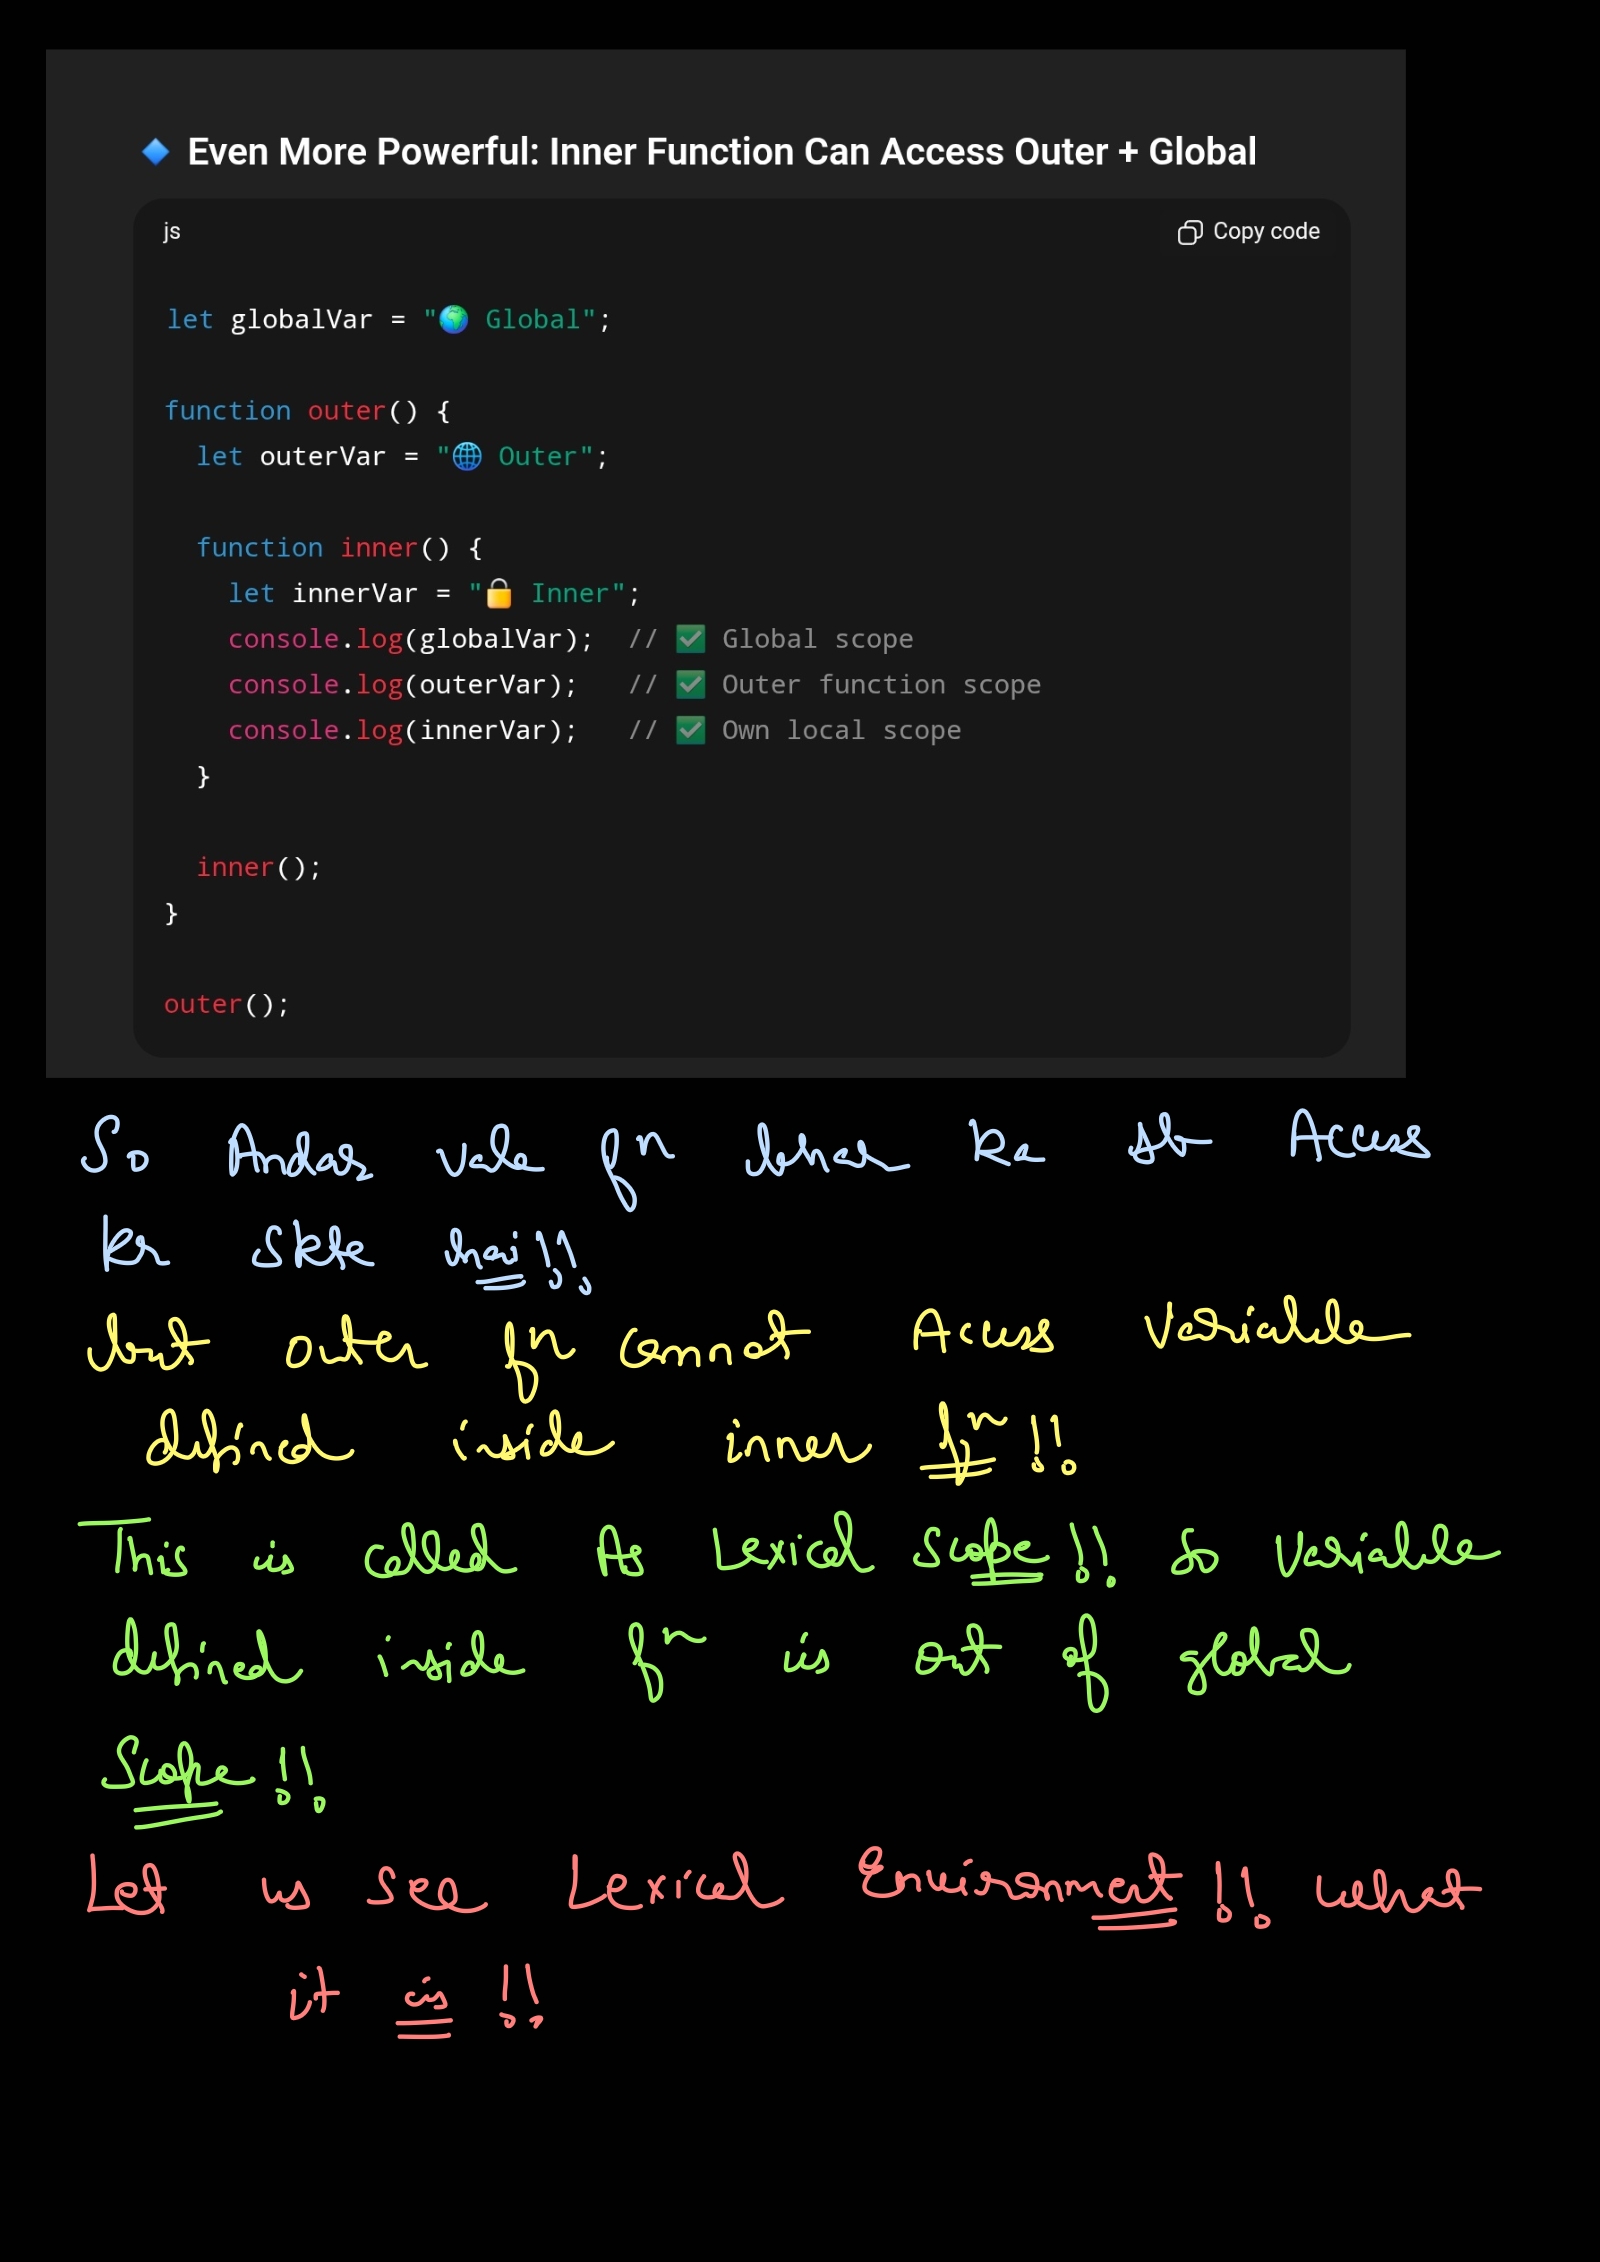 🔷 Even More Powerful: Inner Function Can Access Outer + Global
js Copy code
let globalVar = "🌍 Global";
function outer() {
  let outerVar = "🌐 Outer";
  function inner() {
    let innerVar = "🔒 Inner";
    console.log(globalVar);  // ✅ Global scope
    console.log(outerVar);   // ✅ Outer function scope
    console.log(innerVar);   // ✅ Own local scope
  }
  inner();
}
outer();
So Andar vale fⁿ bhar ka sb Access
kr skte hai!!
but outer fⁿ cannot Access Variable
defined inside inner fⁿ!!
This is called As Lexical Scope!! So Variable
defined inside fⁿ is out of global
Scope!!
Let us see Lexical Environment!! what
it is!!